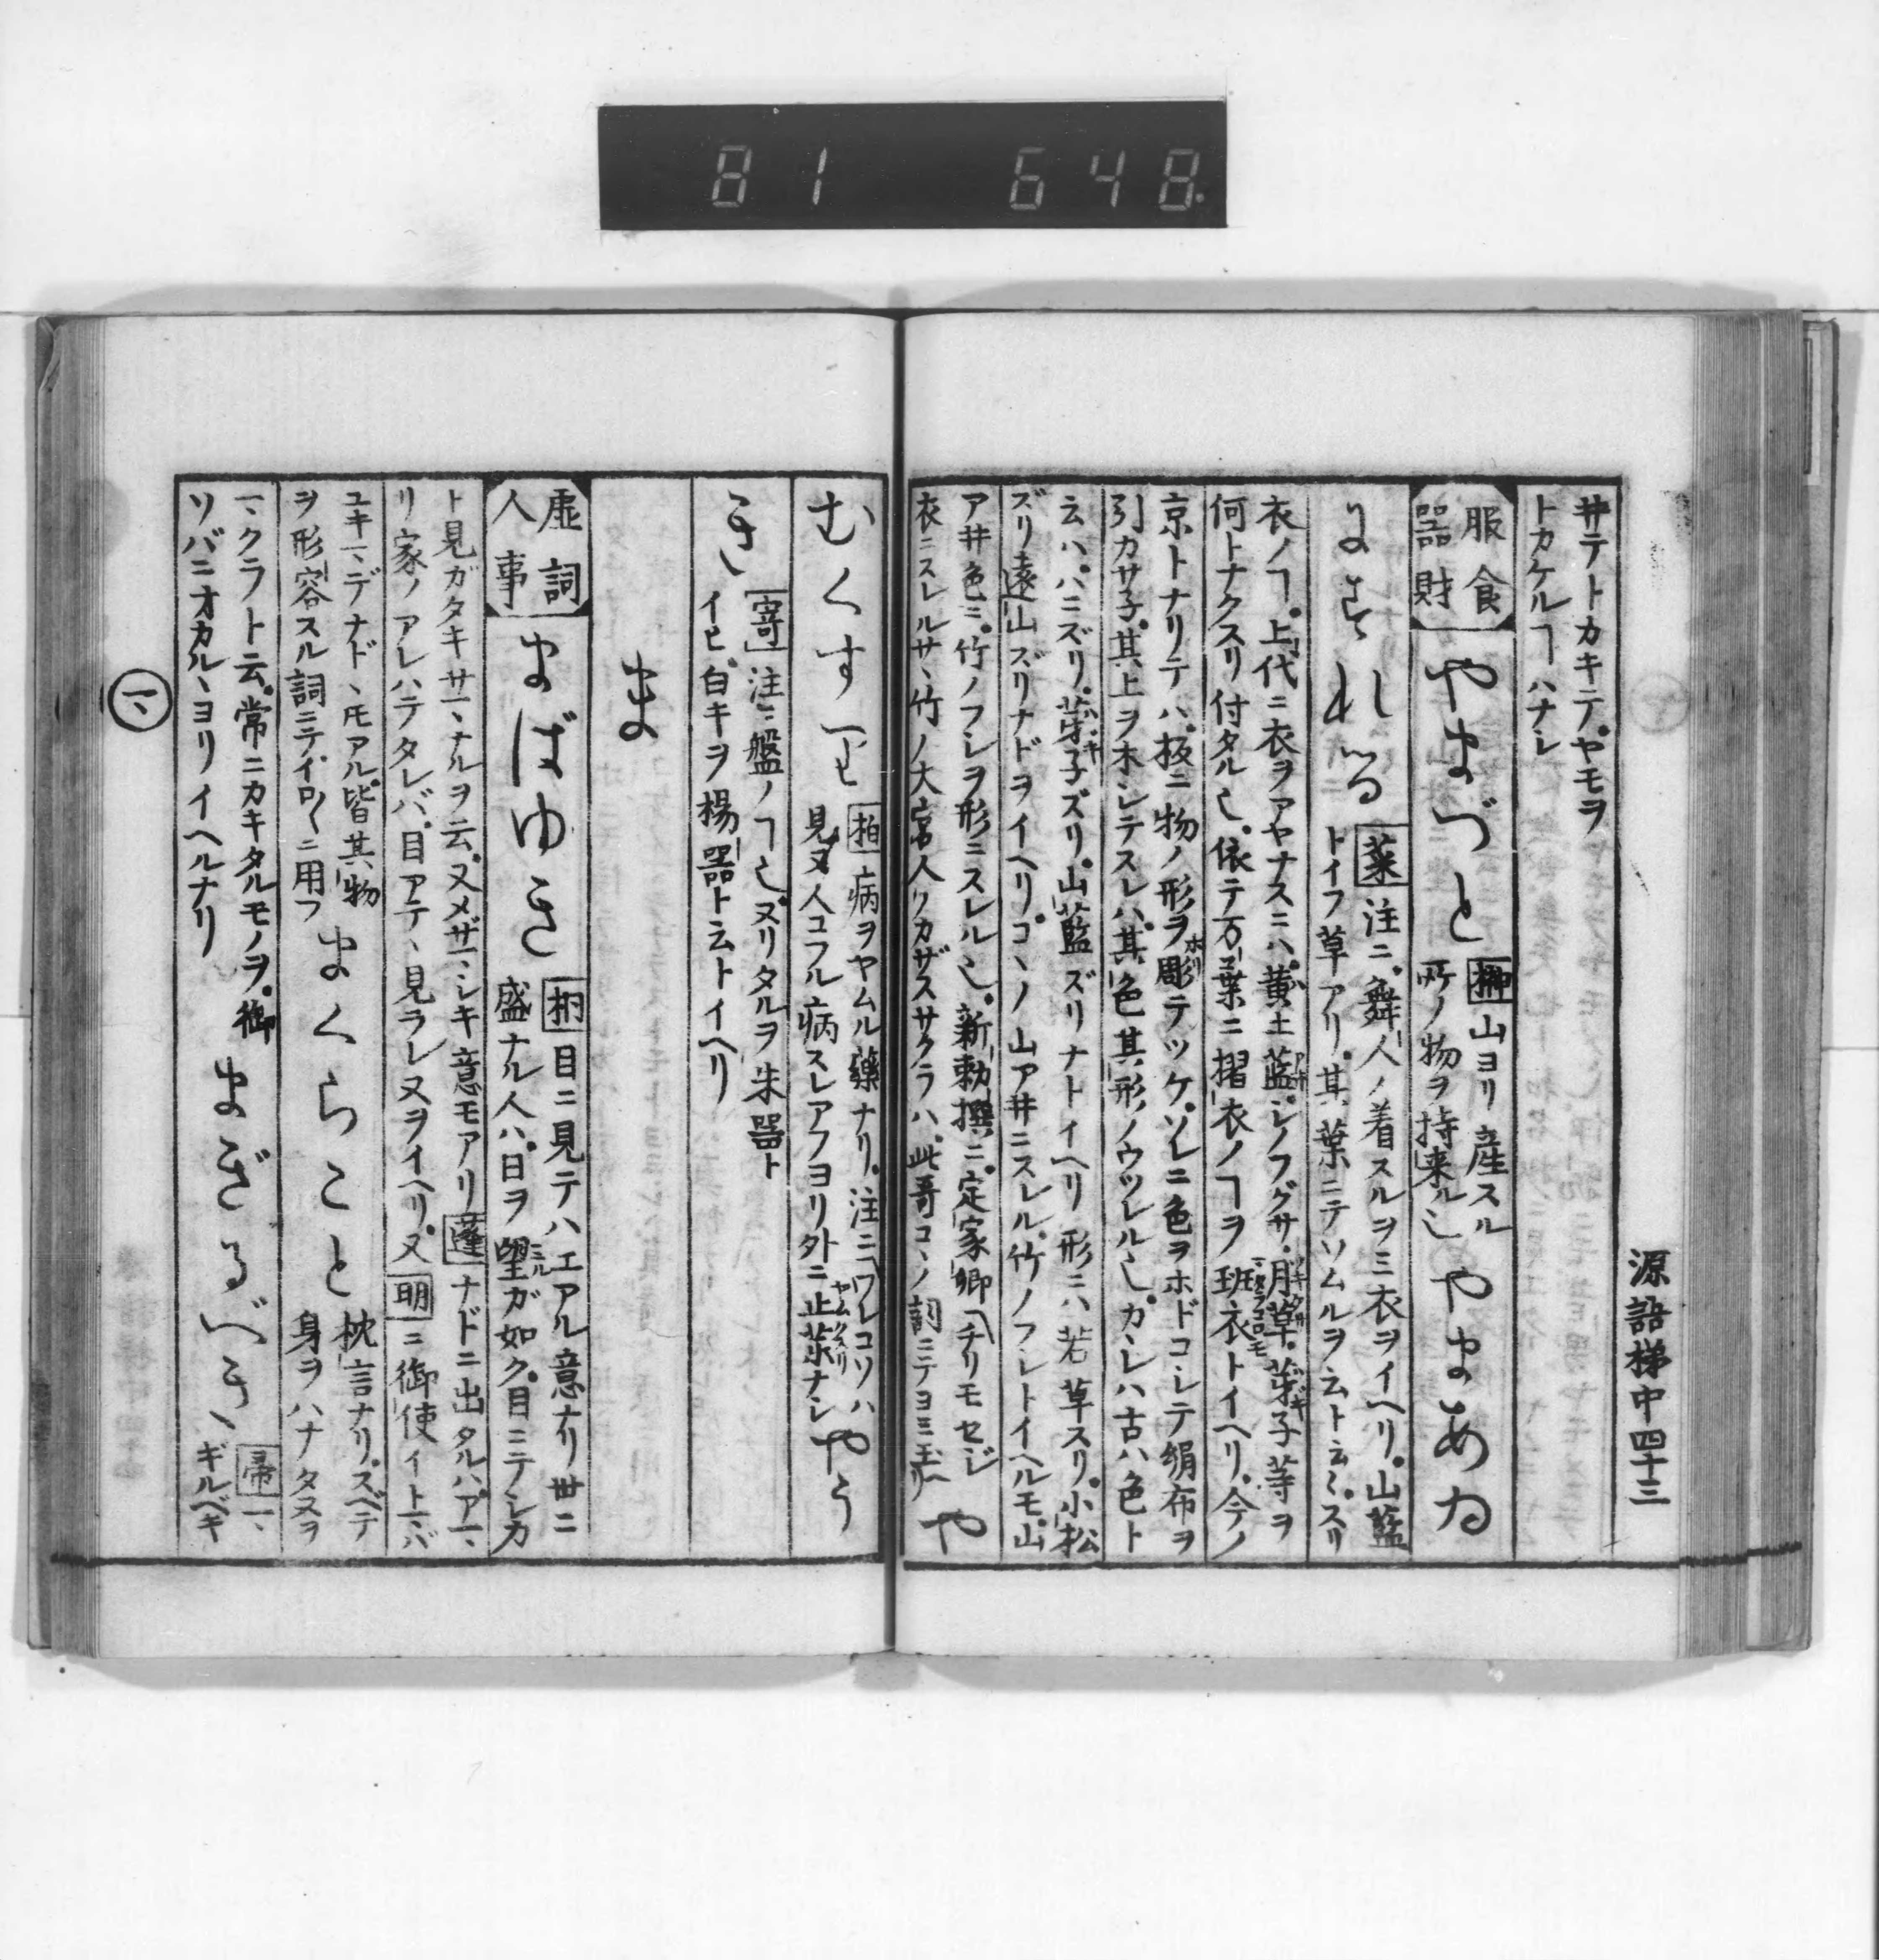 81 648
源語梯中 四十三
井テトカキテ。ヤモヲ
トカケルヿハナシ
服食
器財
やまづと
榊 山ヨリ産スル
所ノ物ヲ持来ル也
やまあゐ
にすれる
葉 注ニ。舞人ノ着スルヲミ衣ヲイヘリ。山藍
トイフ草アリ。其葉ニテソムルヲ云ト云々。スリ
衣ノヿ。上代ニ衣ヲアヤナスニハ。黄土藍。シノフグサ。月草。芽子等ヲ
何トナクスリ付タル也。依テ万葉ニ摺衣ノヿヲ班衣トイヘリ。今ノ
京トナリテハ。板ニ物ノ形ヲ彫テツケ。ソレニ色ヲホドコシテ絹布ヲ
引カサ子。其上ヲホシテスレハ。其色其形ノウツレル也。カヽレハ古ハ色ト
云ハ。ハニズリ。芽子ズリ。山藍ズリナトイヘリ形ニハ若草スリ。小松
ズリ遠山ズリナドヲイヘリ。コヽノ山ア井ニスレル。竹ノフシトイヘルモ。山
ア井色ニ。竹ノフシヲ形ニスレル也。新勅撰ニ。定家卿チリモセジ
衣ニスレルサヽ竹ノ大宮人ノカザスサクラハ。此哥コヽノ詞ニテヨミ玉ヘリ
や
むくすり
柏 病ヲヤムル藥ナリ。注ニワレコソハ
見ヌ人コフル病スレアフヨリ外ニ止薬ナシ
やう
き
寄 注ニ盤ノヿ也。ヌリタルヲ朱器ト
イヒ。白キヲ楊器ト云トイヘリ
ま
虚詞
人事
まばゆき
桐 目ニ見テハエアル意ナリ世ニ
盛ナル人ハ。日ヲ望ガ如ク。目ニテシカ
ト見ガタキサマヽナルヲ云。又メザマヽシキ意モアリ 蓬 ナドニ出タルハ。アマヽ
リ家ノアレハテタレバ。目アテヽ見ラレヌヲイヘリ。又 明 ニ御使イトマヽバ
ユキマヽデナドヽモアル。皆其物
ヲ形容スル詞ニテ。イロ〱ニ用フ
まくらごと
枕言ナリ。スベテ
身ヲハナタヌヲ
マヽクラト云。常ニカキタルモノヲ。御
ソバニオカルヽヨリイヘルナリ
まぎるべき
帚 マヽ
ギルベキ
マヽ